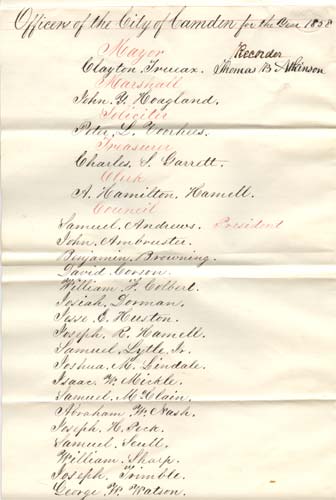 Officers of the City of Camden for the Year 1858
Mayor Recorder
Clayton Trueax. Thomas B. Atkinson
Marshall
John. Y. Hoagland.
Soliciter
Peter. L. Voorhees.
Treasurer
Charles. S. Garrett.
Clerk
A. Hamilton. Hamell.
Council
Samuel. Andrews. President
John. Ambruster.
Benjamin. Browning.
David. Corson.
William. F. Colbert.
Josiah. Dorman.
Jesse. E. Huston.
Joseph. R. Hamell.
Samuel. Lytle. Jr.
Joshua. M. Lindale.
Isaac. W. Mickle.
Samuel. McClain.
Abraham. W. Nash.
Joseph. H. Peck.
Samuel. Scull.
William. Sharp.
Joseph. Trimble.
George. W. Watson.